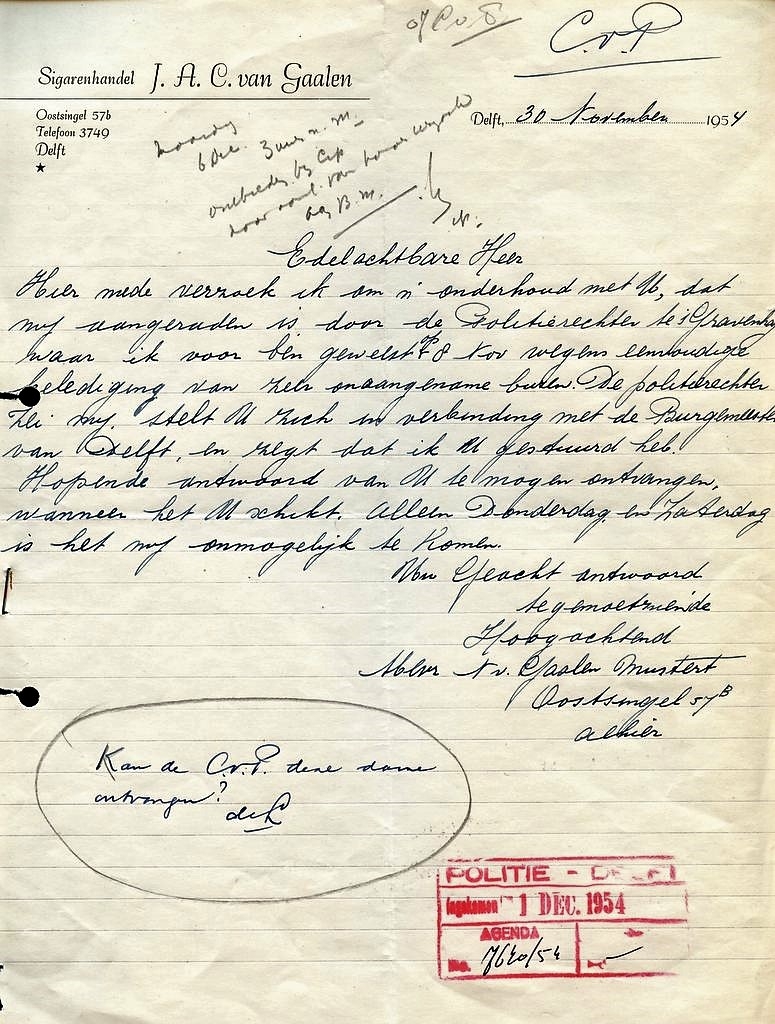 C.v.P
Sigarenhandel J. A. C. van Gaalen
Oostsingel 57b
Telefoon 3749
Delft
Delft, 30 November 1954
Maandag
6 Dec. 3 uur n.m.
ontbieden bij CvP
Edelachtbare Heer
Hier mede verzoek ik om n' onderhoud met U, dat
my aangeraden is door de Politierechter te 's Gravenhag
waar ik voor ben geweest 8 Nov wegens eenvoudige
belediging van zeer onaangename buren. De politierechter
zei my, stelt U zich in verbinding met de Burgemeester
van Delft, en zegt dat ik U gestuurd heb.
Hopende antwoord van U te mogen ontvangen,
wanneer het U schikt. Alleen Donderdag en Zaterdag
is het my onmogelijk te komen.
Uw Geacht antwoord
tegemoetziende
Hoogachtend
Mevr N v. Gaalen Mustert
Oostsingel 57B
alhier
Kan de C.v.P. deze dame
ontvangen?
POLITIE - DELFT
Ingekomen 1 DEC. 1954
AGENDA
No. 7640/54